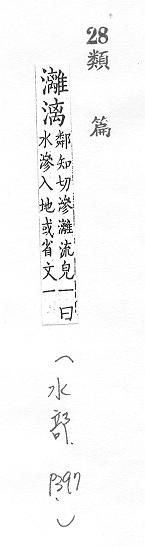 28
類篇
灕漓
鄰知切滲灕流皃一曰
水滲入地或省文一
(水部.P397.)